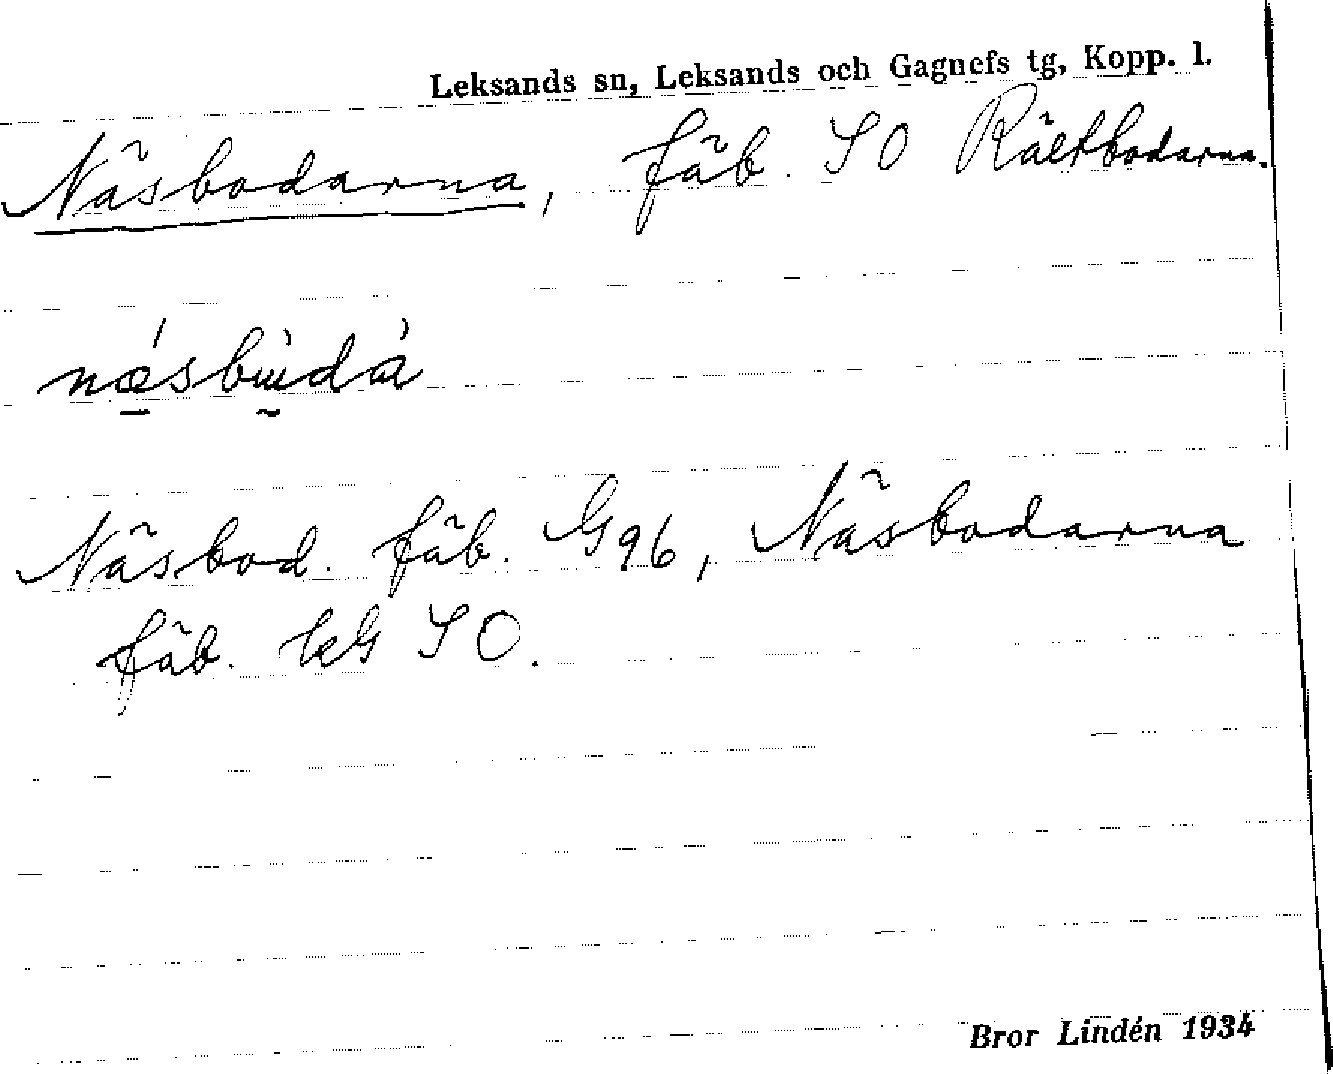 Leksands sn, Leksands och Gagnefs tg, Kopp. l.
Näsbodarna, fäb. SO Rältbodarna.
Näsbod. fäb. G96, Näsbodarna
fäb. SO.
Bror Lindén 1934